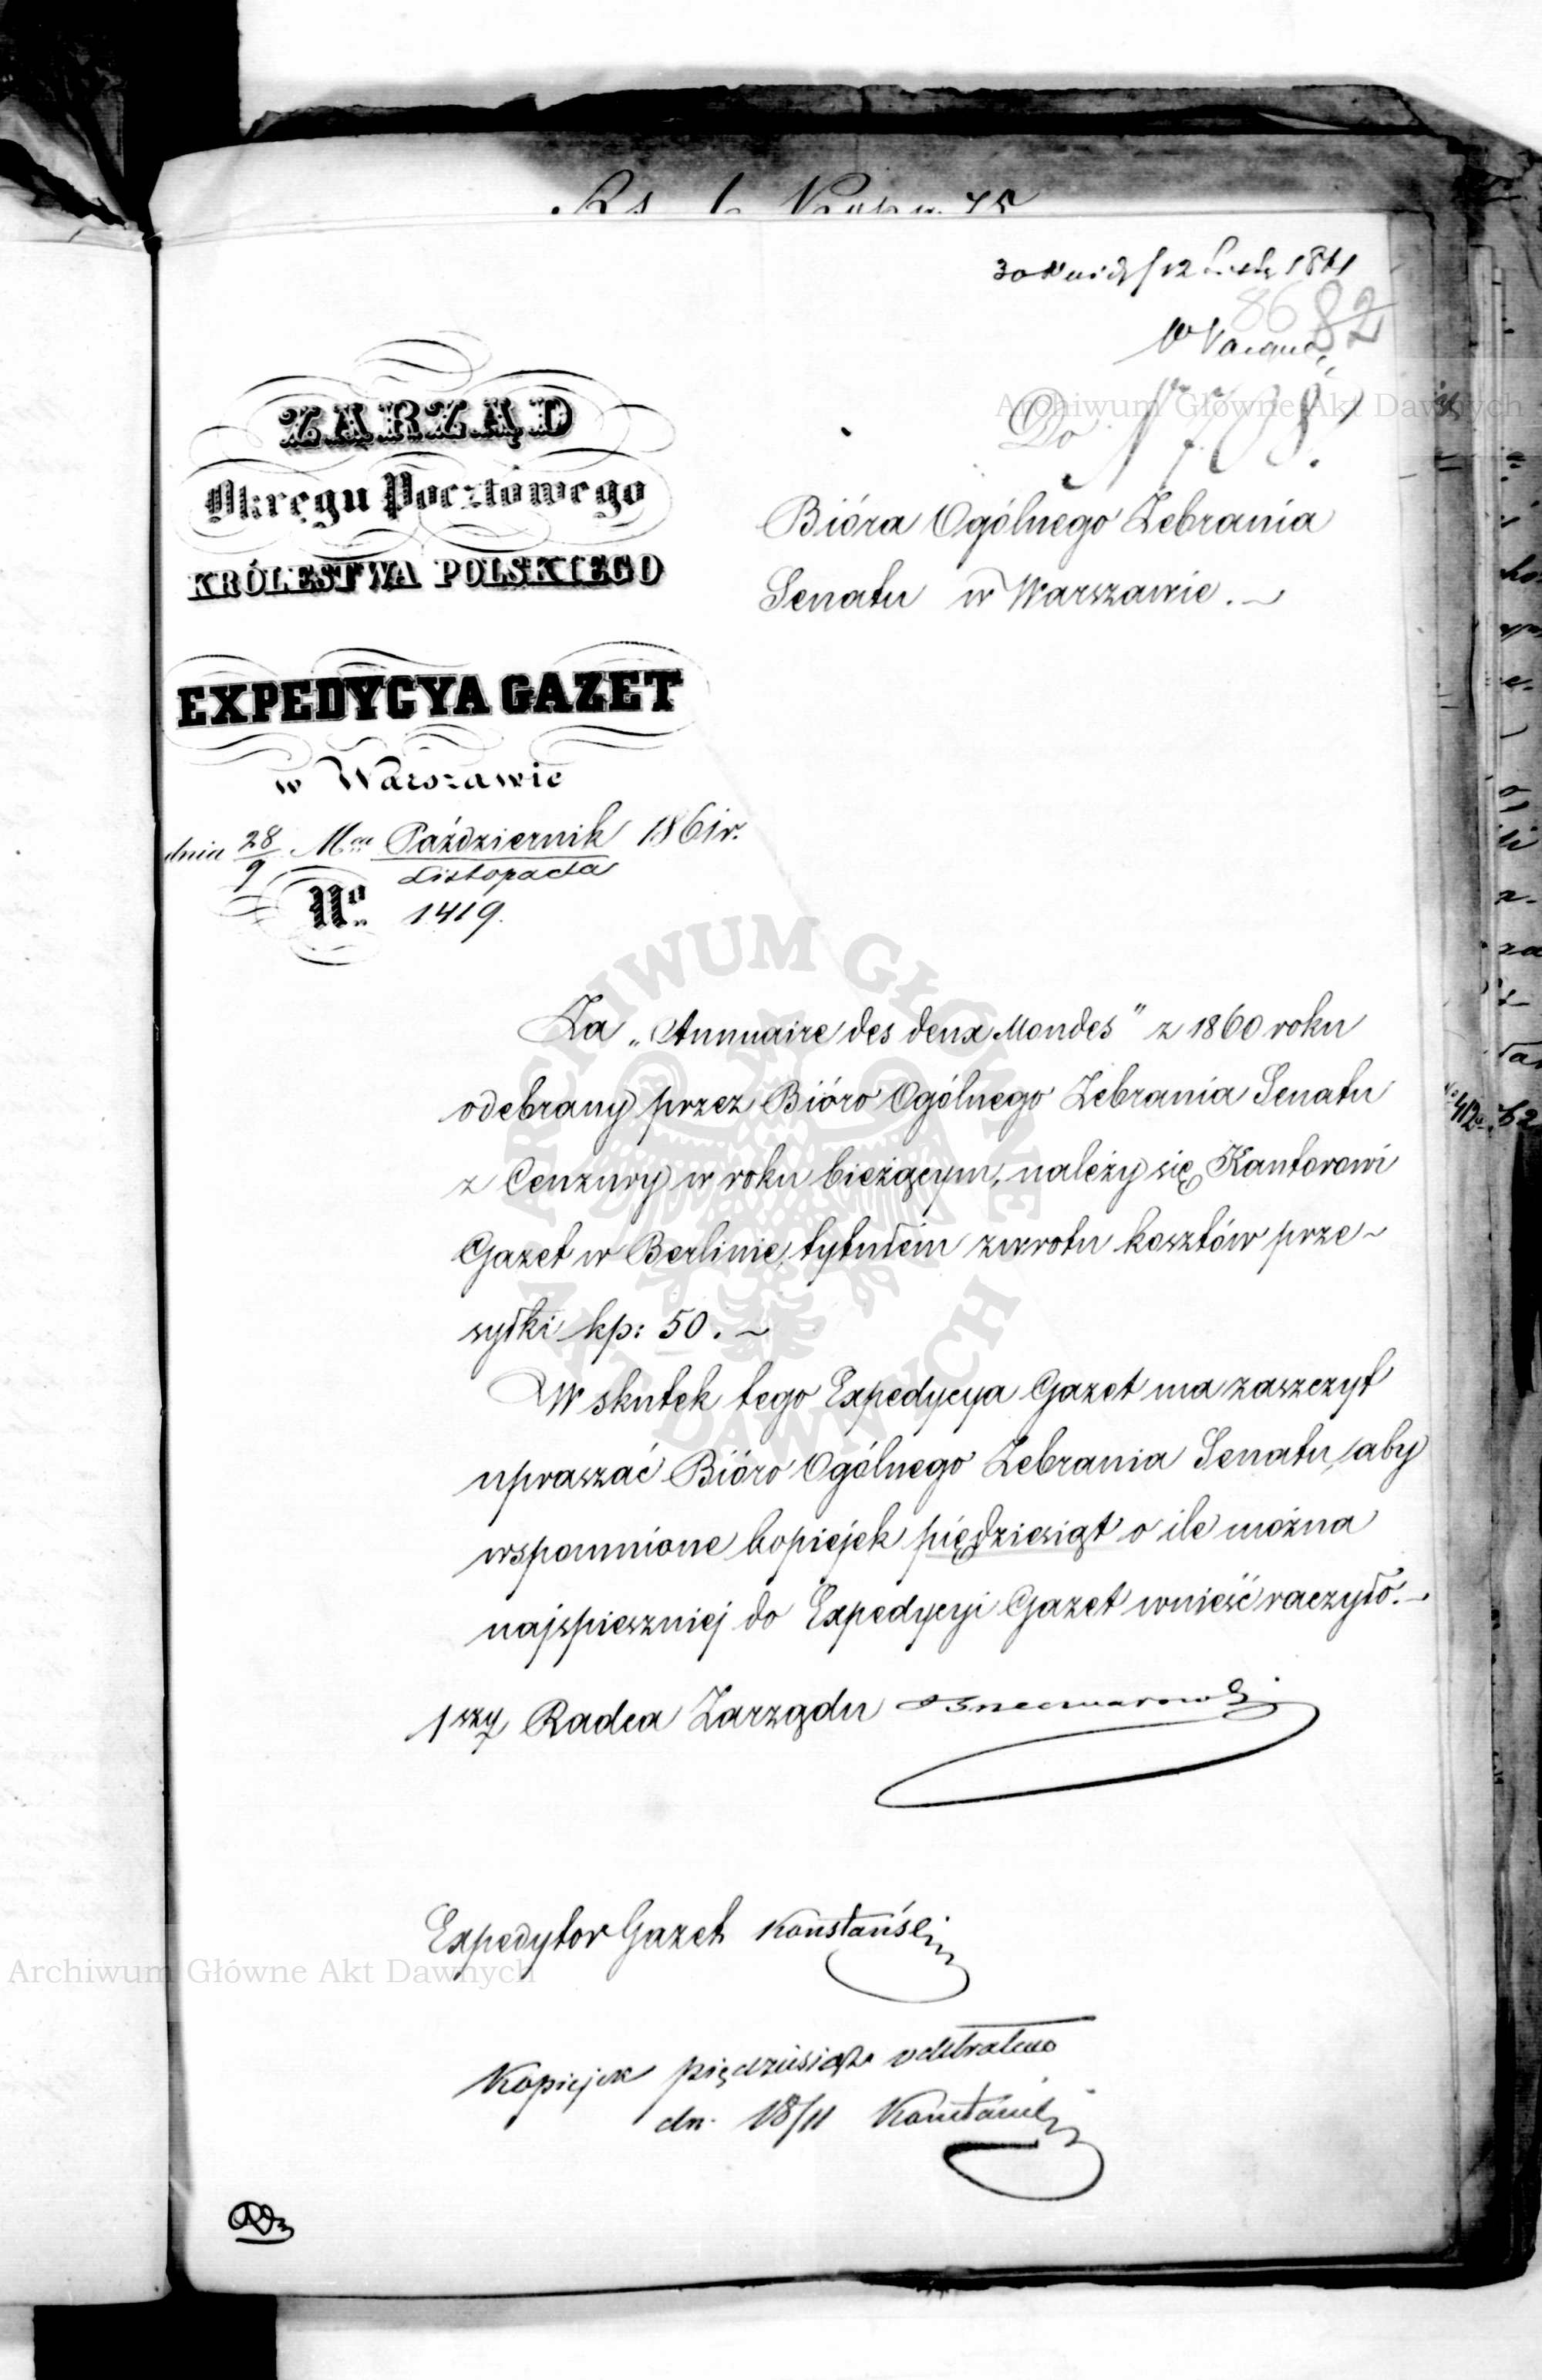 86 82
ZARZĄD
Okręgu Pocztowego
KRÓLESTWA POLSKIEGO
EXPEDYCYA GAZET
w Warszawie
dnia 28/9 Mca Październik/Listopada 1861 r.
No. 1419.
Do
Bióra Ogólnego Zebrania
Senatu w Warszawie.
Za „Annuaire des deux Mondes" z 1860 roku
odebrany przez Bióro Ogólnego Zebrania Senatu
z Cenzury w roku bieżącym, należy się Kantorowi
Gazet w Berlinie, tytułem zwrotu kosztów prze-
syłki kp: 50.
W skutek tego Expedycya Gazet ma zaszczyt
upraszać Bióro Ogólnego Zebrania Senatu, aby
wspomnione kopiejek pięćdziesiąt o ile można
najspieszniej do Expedycyi Gazet wnieść raczyło.
1szy Radca Zarządu
Expedytor Gazet
Kopiejek pięćdziesiąt odebrałem
dn. 18/11
Archiwum Główne Akt Dawnych
ARCHIWUM GŁÓWNE AKT DAWNYCH
Archiwum Główne Akt Dawnych